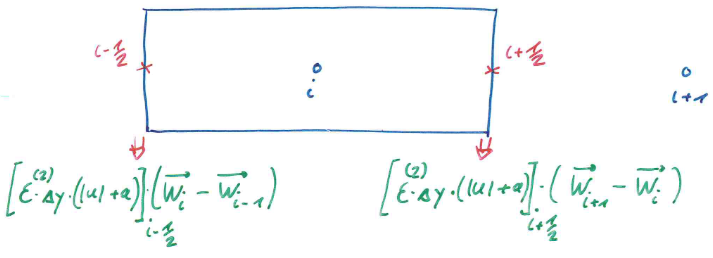 i-1/2
i+1/2
i
i+1
[ε⁽²⁾·Δy·(|u|+a)]_{i-1/2}·(W⃗_i - W⃗_{i-1})
[ε⁽²⁾·Δy·(|u|+a)]_{i+1/2}·(W⃗_{i+1} - W⃗_i)